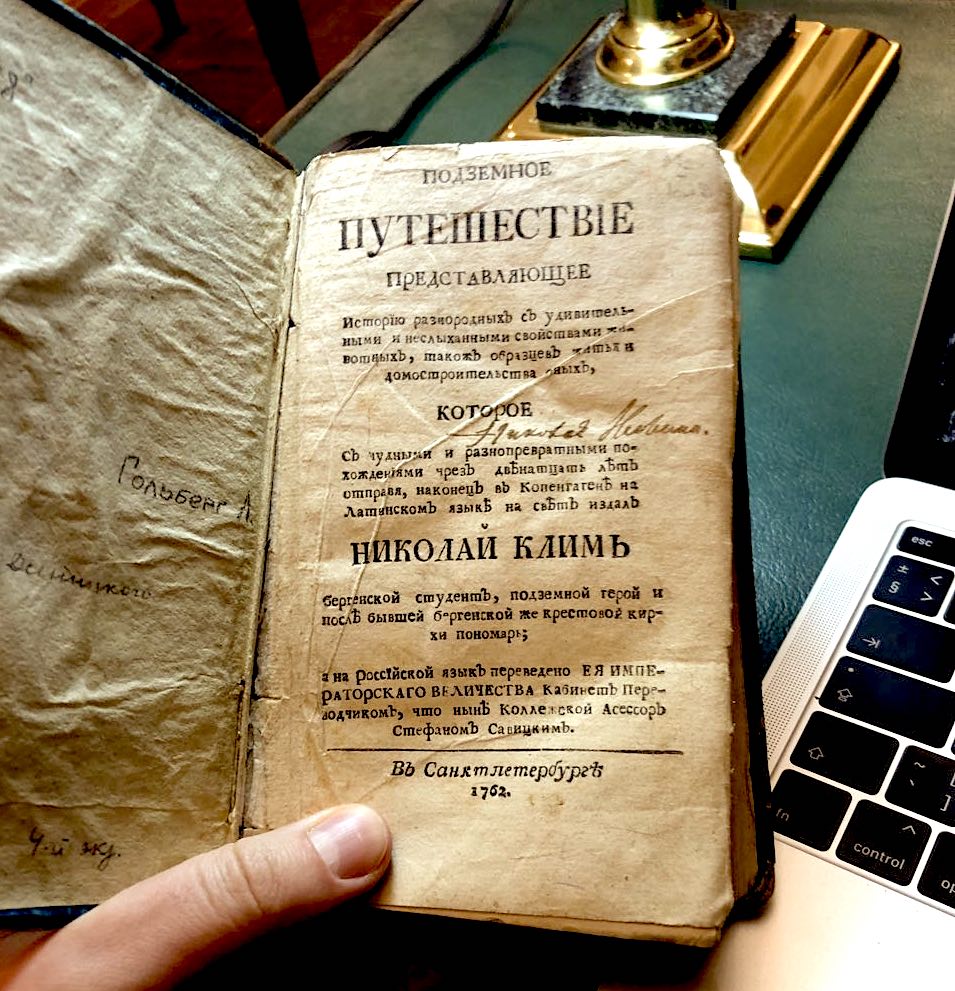 Гольберг Л.
4-й экз.
ПОДЗЕМНОЕ
ПУТЕШЕСТВІЕ
ПРЕДСТАВЛЯЮЩЕЕ
Исторію разнородныхъ съ удивитель-
ными и неслыханными свойствами жи-
вотныхъ, такожъ образцевъ житья и
домостроительства оныхъ,
КОТОРОЕ
Николай
Съ чудными и разнопревратными по-
хожденіями чрезъ двѣнатцать лѣтъ
отправя, наконецъ въ Копенгагенѣ на
Латинскомъ языкѣ на свѣтъ издалъ
НИКОЛАЙ КЛИМЪ
бергенской студентъ, подземной герой и
послѣ бывшей бергенской же крестовой кир-
хи пономарь;
а на Россїйской языкъ переведено ЕЯ ИМПЕ-
РАТОРСКАГО ВЕЛИЧЕСТВА Кабинетъ Пере-
водчикомъ, что нынѣ Коллежской Асессоръ
Стефаномъ Савицкимъ.
Въ Санктпетербургѣ
1762.
esc
± <
§ >
~
` ]
fn
^
control
op